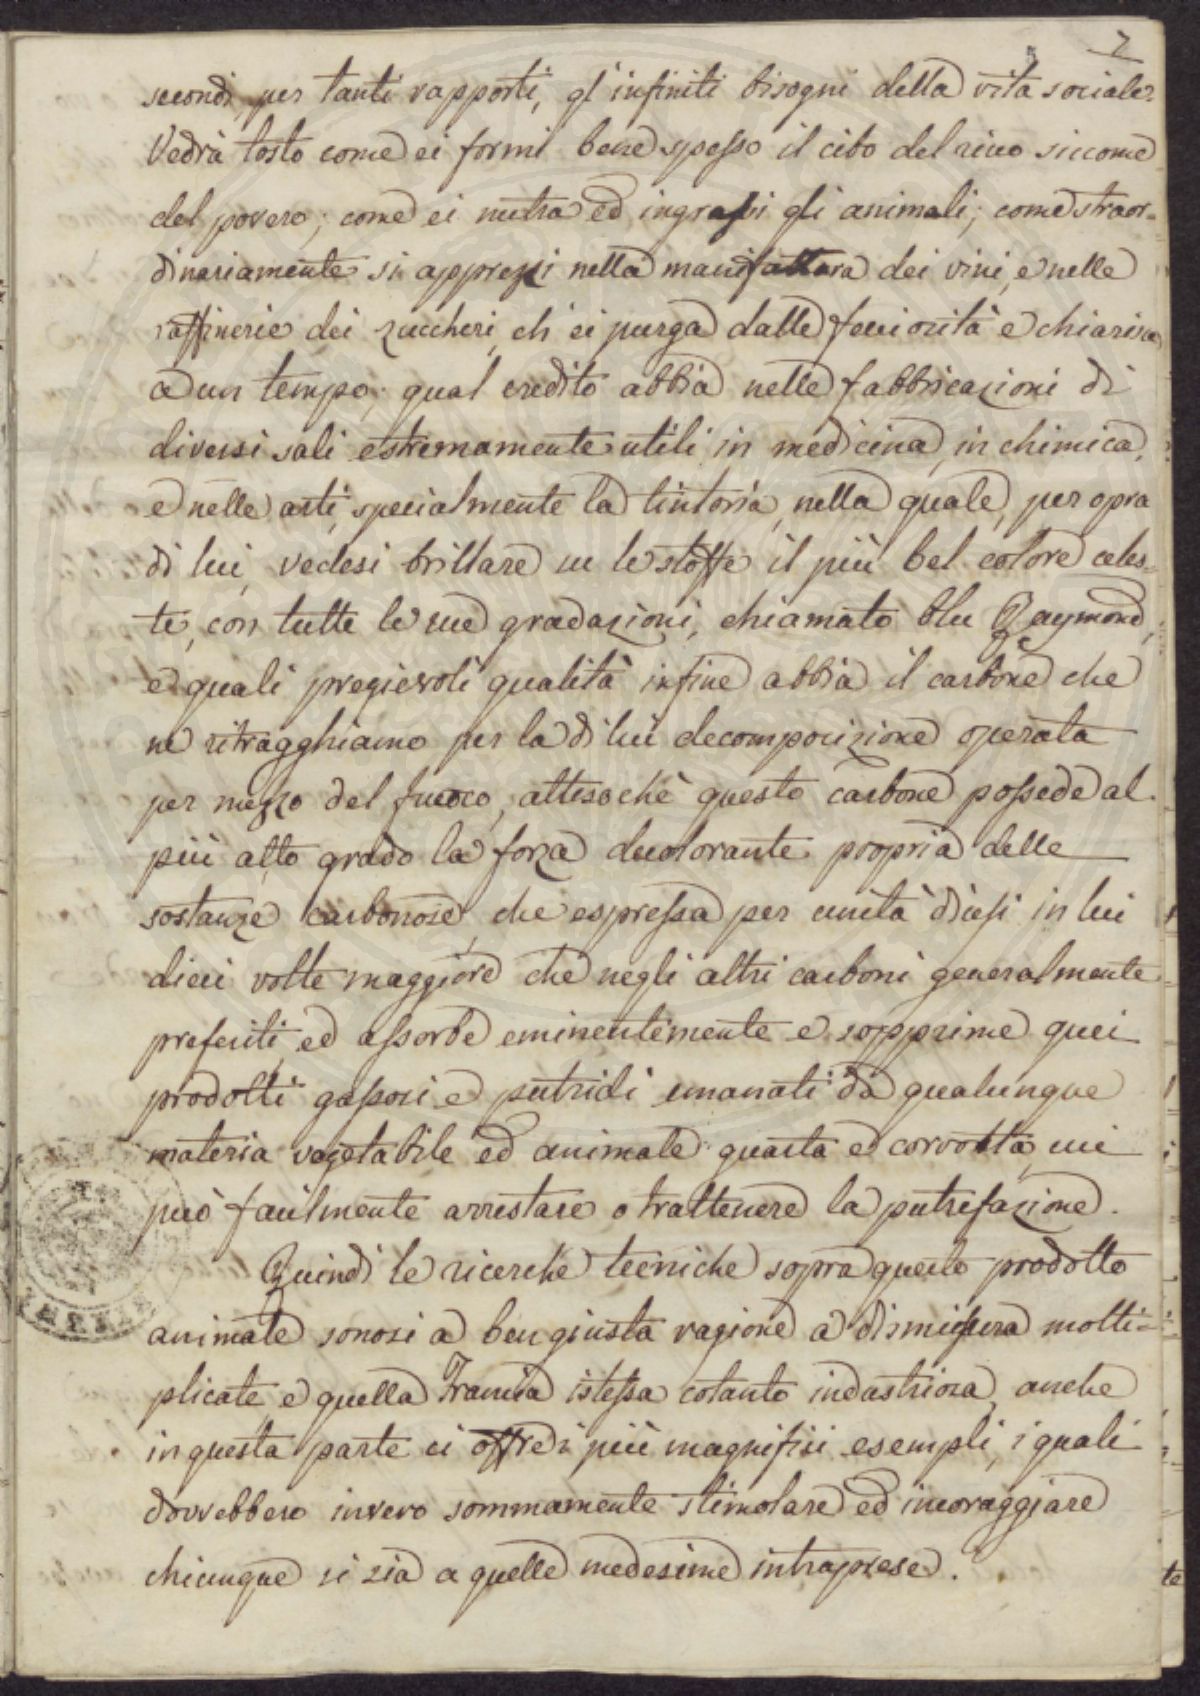 2
secondi, per tanti rapporti, gl'infiniti bisogni della vita sociale.
Vedrà tosto come ei formi bene spesso il cibo del ricco siccome
del povero; come ei nutra ed ingrassi gli animali; come straor=
dinariamente si apprezzi nella manifattura dei vini, e nelle
raffinerie dei zuccheri, ch'ei purga dalle fecciosità e chiarisce
a un tempo; qual credito abbia nelle fabbricazioni di
diversi sali estremamente utili in medicina, in chimica,
e nelle arti, specialmente la tintoria, nella quale, per opra
di lui, vedesi brillare su le stoffe il più bel colore celes=
te, con tutte le sue gradazioni, chiamato blu Raymond,
e quali pregievoli qualità infine abbia il carbone che
ne ritragghiamo per la di lui decomposizione operata
per mezzo del fuoco, attesochè questo carbone possede al
più alto grado la forza decolorante propria delle
sostanze carbonose, che espressa per unità dicesi in lui
dieci volte maggiore che negli altri carboni generalmente
preferiti, ed assorbe eminentemente e sopprime quei
prodotti gassosi e putridi emanati da qualunque
materia vegetabile ed animale guasta e corrotta, cui
può facilmente arrestare o trattenere la putrefazione.
Quindi le ricerche tecniche sopra questo prodotto
animale sonosi a ben giusta ragione a dismisura molti=
plicate, e quella Francia istessa cotanto industriosa, anche
in questa parte ci offre i più magnifici esempli, i quali
dovrebbero invero sommamente stimolare ed incoraggiare
chiunque si sia a quelle medesime intraprese.